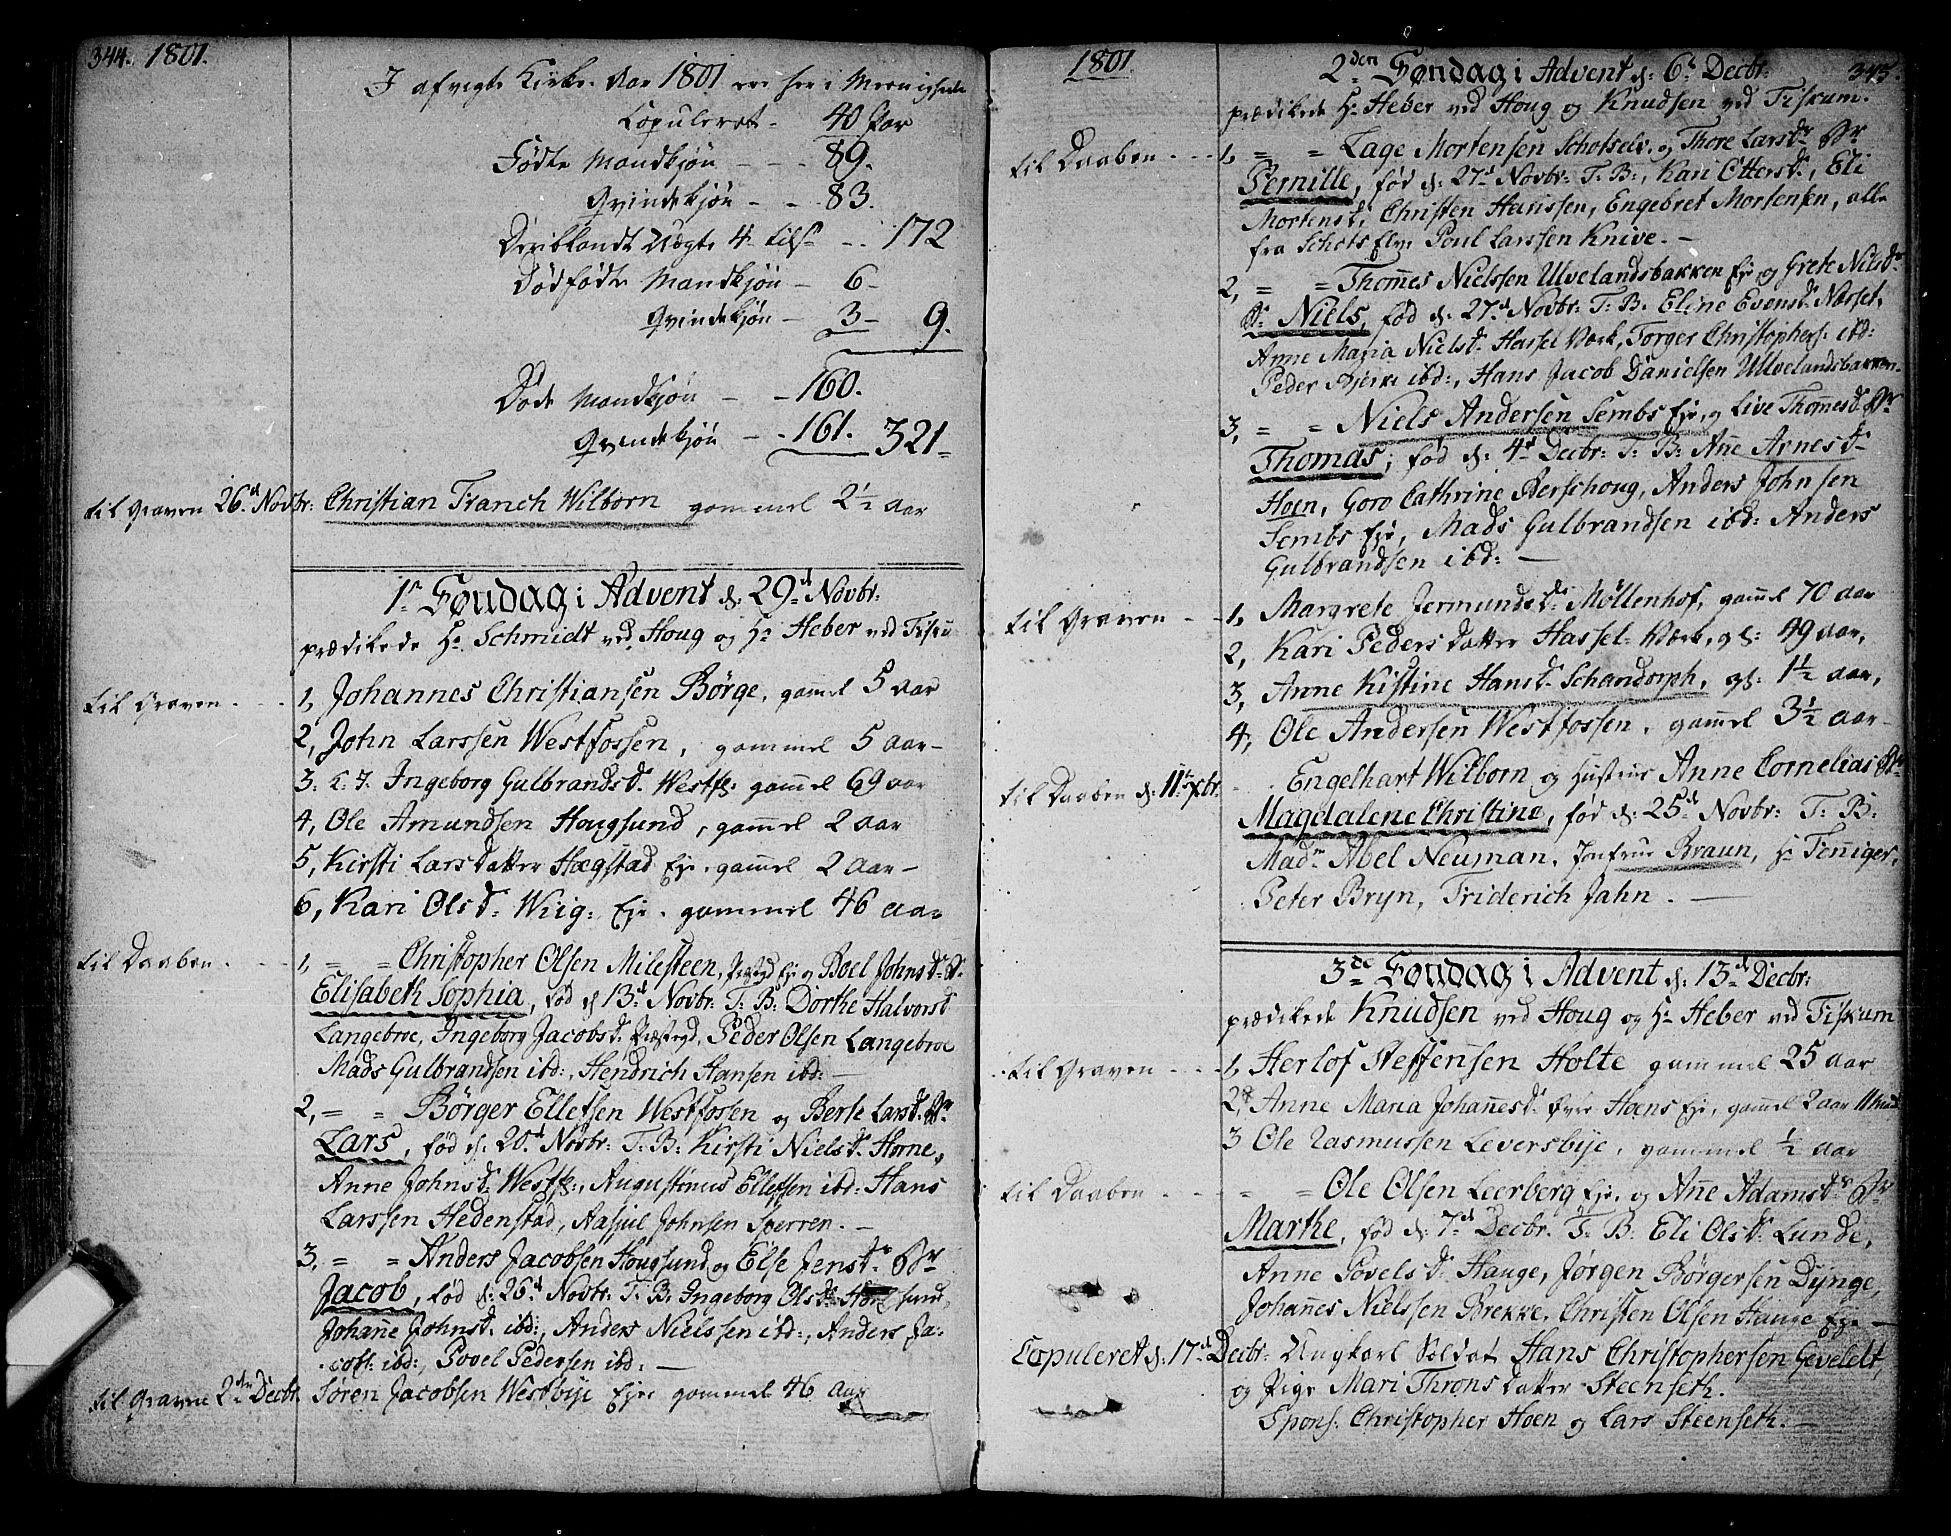 344. 1801.
I afvigte Kirke-Aar 1801 ere her i Meenigheden
Copuleret - 40 Par
Fødte Mandkjøn - - - 89.
Qvindekjøn - - - 83.
Deriblandt Uægte 4. tils. - - 172
Dødfødte Mandkjøn - 6 -
Qvindekjøn - 3 - 9.
Døde Mandkjøn - - 160.
Qvindekjøn - - 161. 321 -
til Graven 26d Novbr: Christian Franch Wilborn gammel 2½ aar
1. Søndag i Advent d: 29d Novbr:
prædikede Hr Schmidt ved Houg og Hr Heber ved Fiskum
til Graven - - - 1, Johannes Christiansen Børge, gammel 5 aar
2, John Larssen Westfossen, gammel 5 aar -
3. Ingeborg Gulbrandsd. Westf: gammel 69 aar
4, Ole Amundsen Hougsund, gammel 2 aar
5, Kirsti Larsdatter Hægstad Eje. gammel 2 aar -
6, Kari Olsd. Wiig: Eje. gammel 46 aar
til Daaben - - - 1, = = Christopher Olsen Milesteen, Eje og Boel Johnsd. D.
Elisabeth Sophia, fød d 13d Novbr: T: B: Dorthe Halvorsd
Langebroe, Ingeborg Jacobsd. Præstegd, Peder Olsen Langebroe
Mads Gulbrandsen ibd:, Hendrich Hansen ibd: -
2, = = Børger Ellefsen Westfossen og Berte Larsd. Br
Lars, fød d: 20d Novbr: T: B: Kirsti Nielsd. Horne,
Anne Johnsd. Westf:, Augustinus Ellefsen ibd: Hans
Larssen Hedenstad, Aasjul Johnsen Sperren. -
3, = = Anders Jacobsen Hougsund og Else Jensd. Br
Jacob, fød d: 26d Novbr: T: B: Ingeborg Olsd. sund,
Johanne Johnsd. ibd:, Anders Nielssen ibd:, Anders Ja-
cobs: ibd:, Povel Pedersen ibd: -
til Graven 2den Decbr. Søren Jacobsen Westbye Eje gammel 46 aar
1801.
345.
2den Søndag i Advent d: 6d Decbr:
prædikede Hr Heber ved Houg og Knudsen ved Fiskum.
til Daaben - - - 1, = = Lage Mortensen Schotselv. og Thore Larsd. Br
Pernille, fød d: 27d Novbr: T: B:, Kari Ottersd., Eli
Mortensd, Christen Hanssen, Engebret Mortensen, alle
fra Schots Elv. Poul Larssen Knive. -
2, = = Thomes Nielssen Ulvelandsbakken Eje og Grete Nilsd.
Br Niels, fød d: 27d Novbr: T: B: Eline Evensd. Næsset,
Anne Maria Nielsd. Hassel Værk, Torger Christophers: ibd:
Peder Bjerke ibd:, Hans Jacob Danielsen Ulvelandsbakken.
3, = = Niels Andersen Sembs Eje, og Live Thomesd. Br
Thomas, fød d: 4d Decbr: T: B: Anne Arnesd.
Hoen, Goro Cathrine Berschoug, Anders Johnsen
Sembs Eje, Mads Gulbrandsen ibd: Anders
Gulbrandsen ibd: -
til Graven - - 1, Margrete Jermundsd. Møllenhof, gammel 70 aar
2, Kari Pedersdatter Hassel-Værk, gl: 49 aar,
3, Anne Kistine Hansd. Schandorph, gl: 1½ aar,
4, Ole Andersen Westfossen. gammel 3½ aar -
til Daaben d: 11te xbr. Engelhart Wilborn og Hustrue Anne Cornelias
Magdalene Christine, fød d: 25d Novbr: T: B:
Madm Abel Neuman, Jomfrue Braun, Hr Tenniger,
Peter Bryn, Friderich Jahn. -
3de Søndag i Advent d: 13d Decbr:
prædikede Knudsen ved Houg og Hr Heber ved Fiskum
til Graven - - - 1, Herlof Steffensen Holte gammel 25 aar
2, Anne Maria Johanesd. Hoens Eje, gammel 2 aar
3 Ole Rasmussen Leversbye, gammel ½ aar
til Daaben - - - = = Ole Olsen Leerberg Eje, og Anne Adamsd. Br
Marthe, fød d: 7d Decbr. T: B: Eli Olsd. Lunde,
Anne Povelsd. Hauge, Jørgen Børgersen Dynge,
Johannes Nielssen Brekke, Christen Olsen Hauge Eje -
Copuleret d: 17d Decbr: Ungkarl Soldat Hans Christophersen Gevelelt,
og Pige Mari Thronsdatter Steenseth.
Spons. Christopher Hoen og Lars Steenseth. -